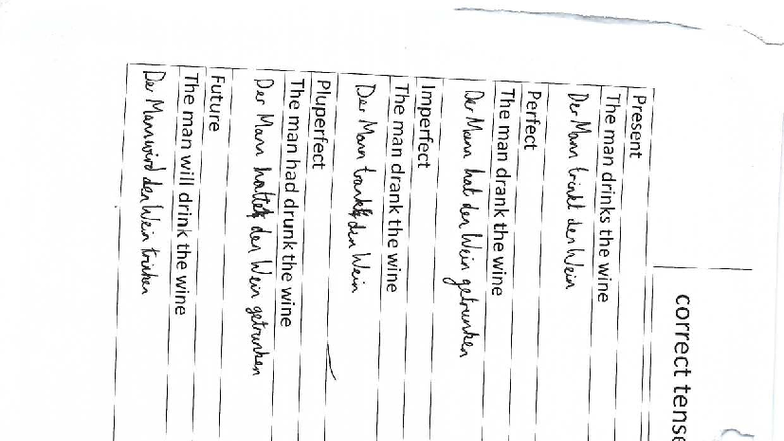 correct tense
Present
The man drinks the wine
Der Mann trinkt den Wein
Perfect
The man drank the wine
Der Mann hat den Wein getrunken
Imperfect
The man drank the wine
Der Mann trank den Wein
Pluperfect
The man had drunk the wine
Der Mann hatte den Wein getrunken
Future
The man will drink the wine
Der Mann wird den Wein trinken